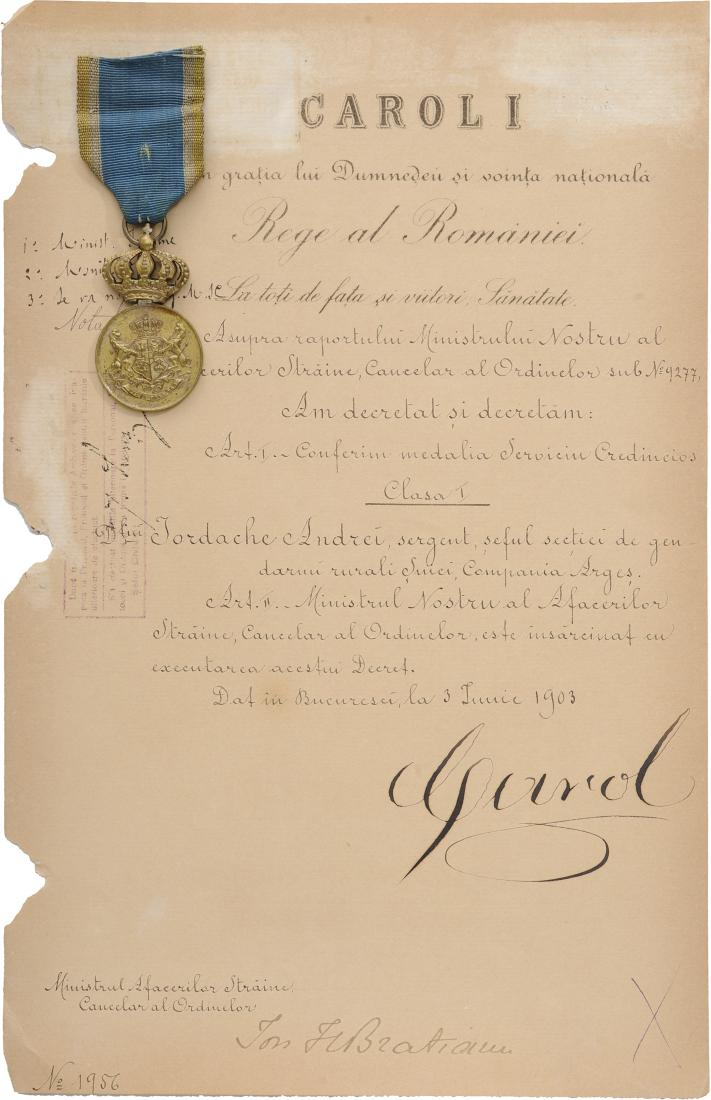 CAROL I
grația lui Dumnedeu și voința națională
Rege al României.
1º Minist.
2º
3º
La toți de fața și viitori, Sănătate.
Nota
Asupra raportului Ministrului Nostru al
cerilor Străine, Cancelar al Ordinelor sub No 9277,
Am decretat și decretăm:
Art. I. - Conferim medalia Serviciu Credincios
Clasa I
Iordache Andrei, sergent, șeful secției de gen-
darmi rurali Șuici, Compania Argeș.
Art. II. - Ministrul Nostru al Afacerilor
Străine, Cancelar al Ordinelor, este însărcinat cu
executarea acestui Decret.
Dat în Bucuresci, la 3 Iunie 1903
Carol
Ministrul Afacerilor Străine,
Cancelar al Ordinelor
Ion I C Bratianu
No 1956